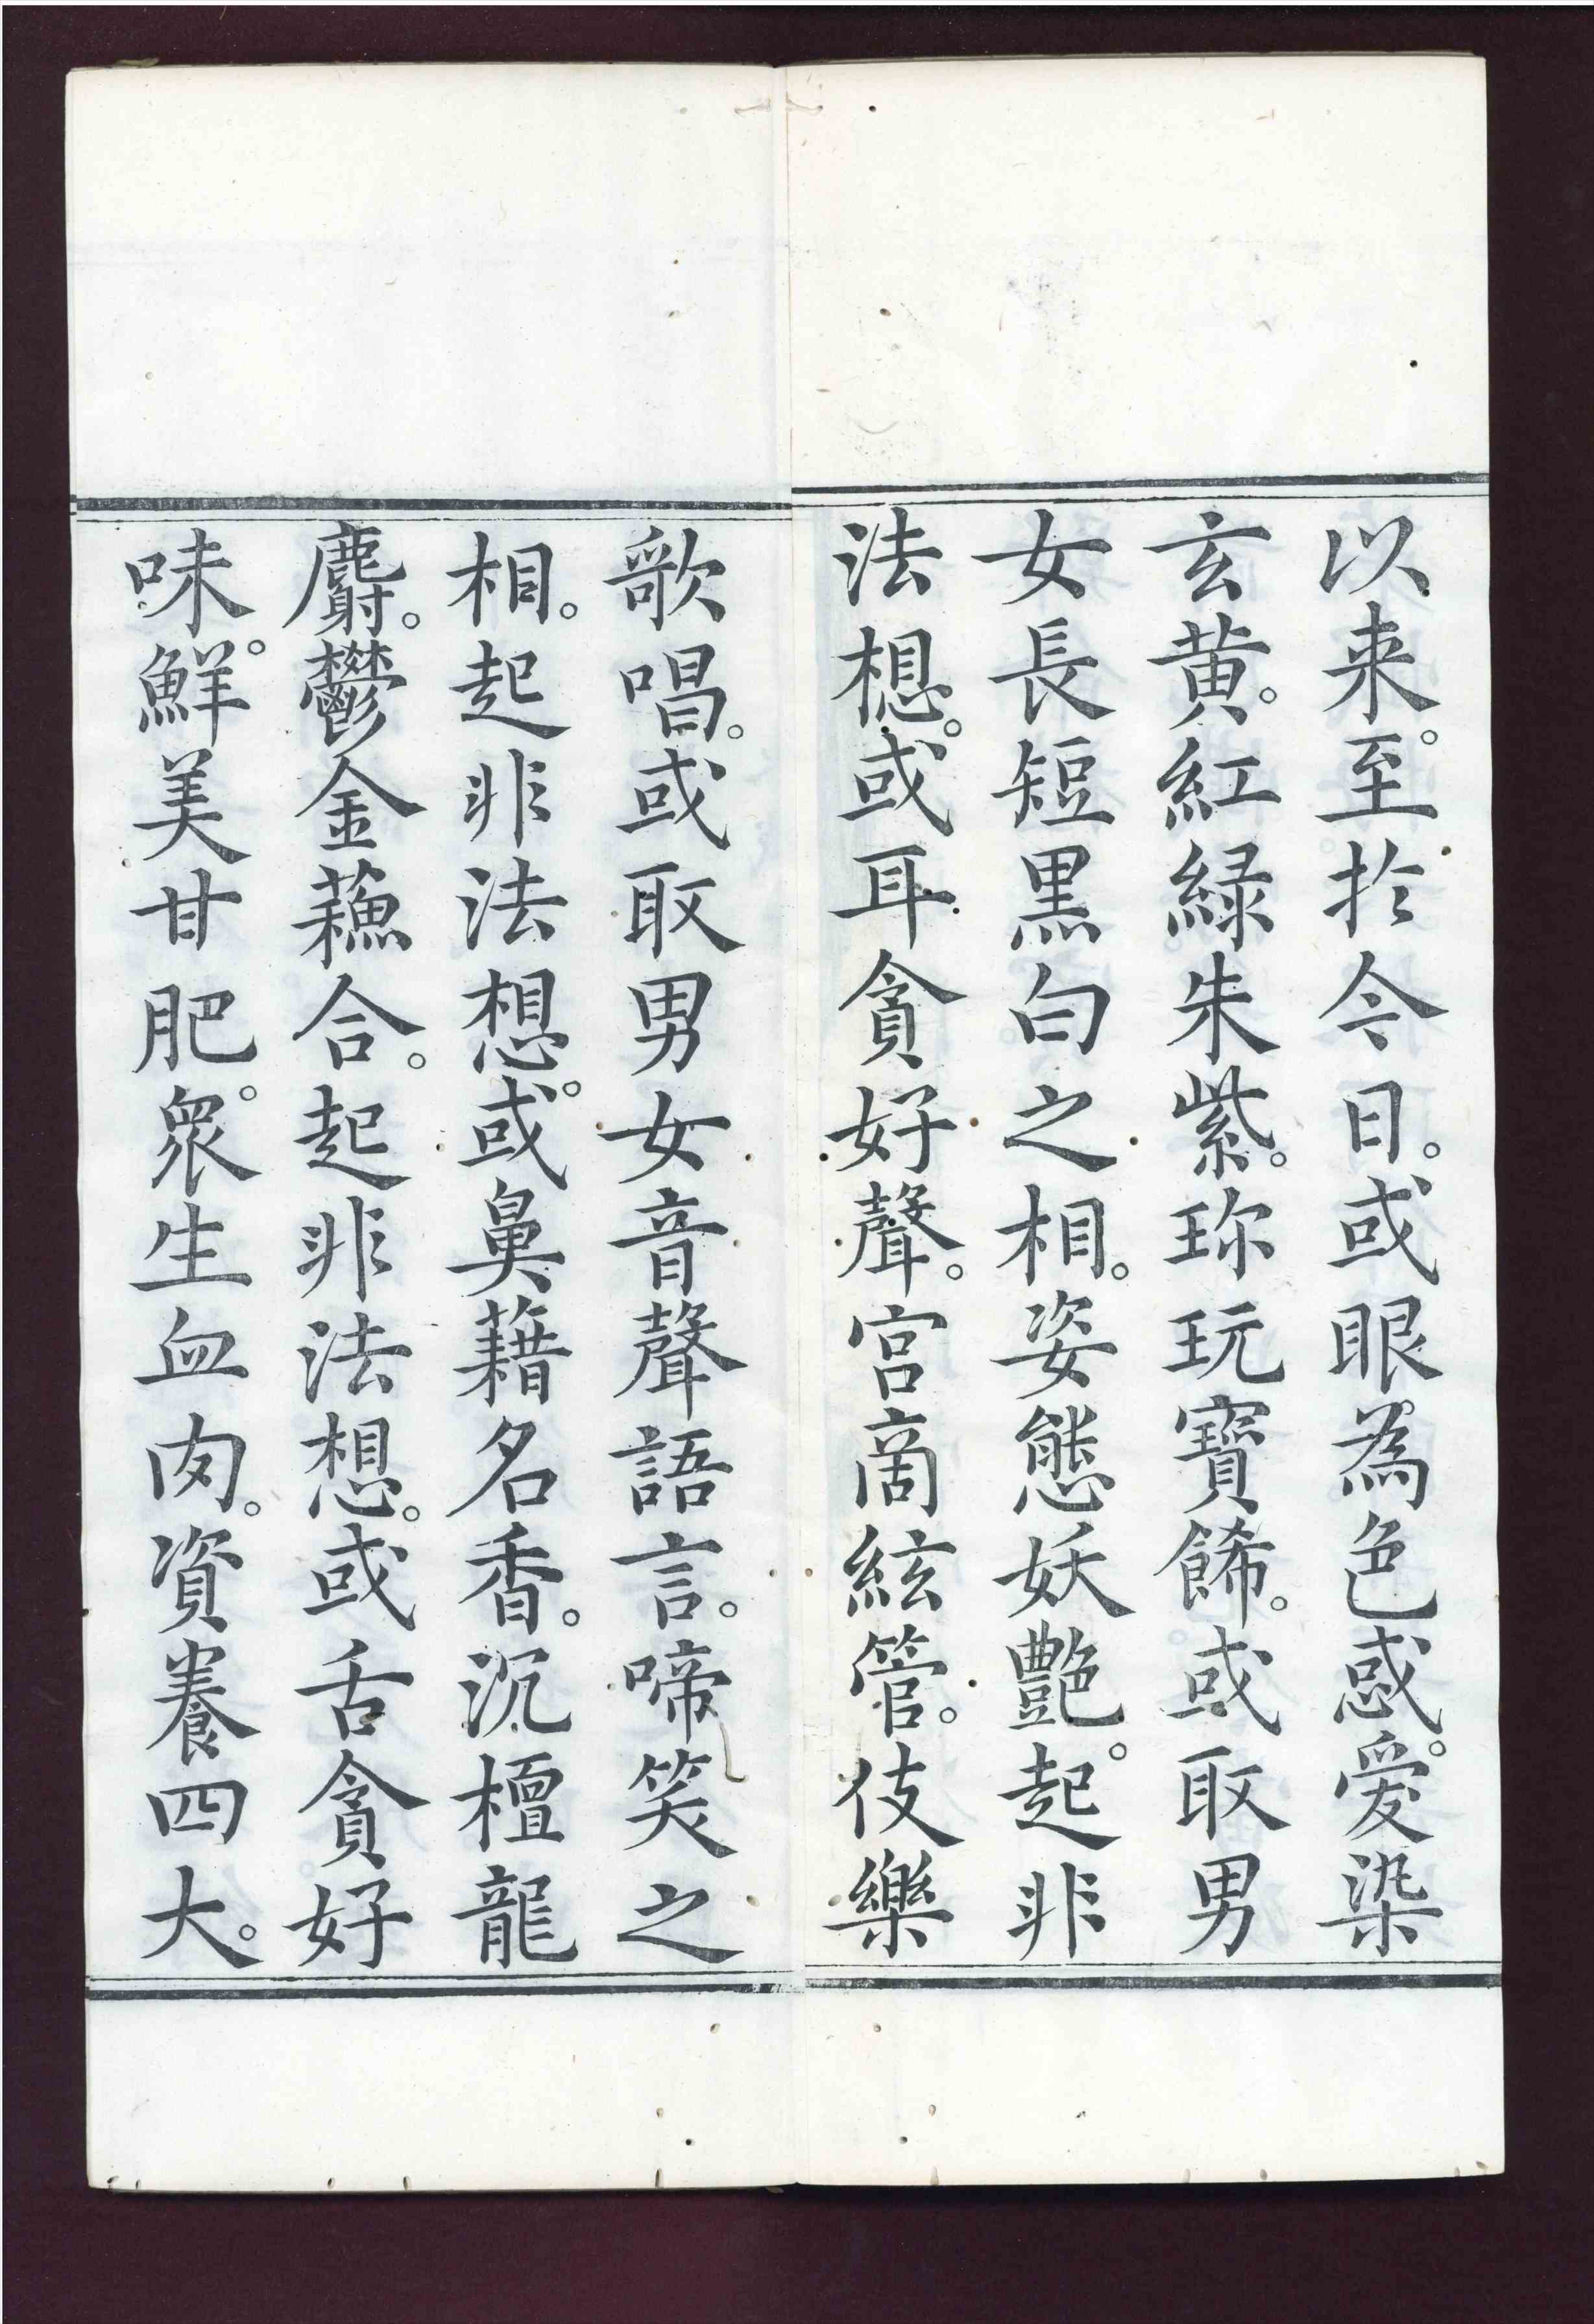 以来。至於今日。或眼為色惑。愛染
玄黄。紅緑朱紫。珎玩寶餙。或取男
女長短黒白之相。姿態妖艷。起非
法想。或耳貪好聲。宫商絃管。伎樂
歌唱。或取男女音聲語言。啼笑之
相。起非法想。或鼻藉名香。沉檀龍
麝。鬱金蘓合。起非法想。或舌貪好
味。鮮美甘肥。衆生血肉。資養四大。